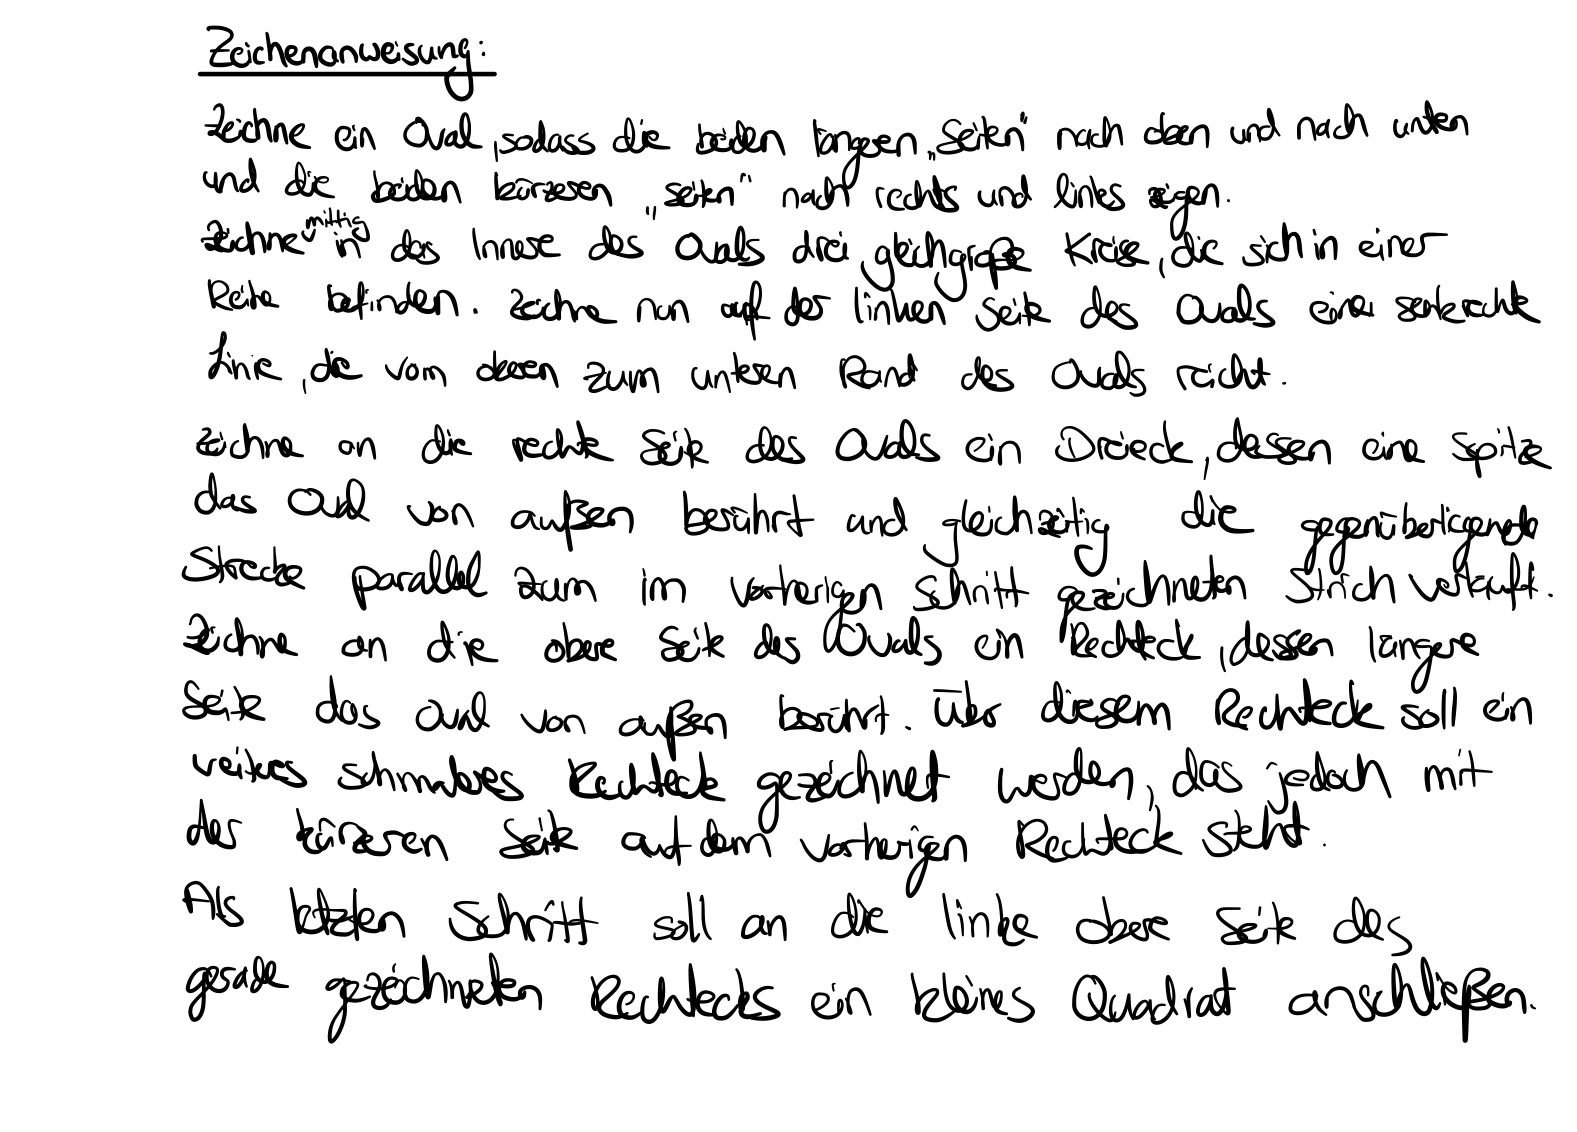 Zeichenanweisung:
Zeichne ein Oval, sodass die beiden längeren „Seiten" nach oben und nach unten
und die beiden kürzeren „Seiten" nach rechts und links zeigen.
Zeichne mittig in das Innere des Ovals drei gleichgroße Kreise, die sich in einer
Reihe befinden. Zeichne nun auf der linken Seite des Ovals eine senkrechte
Linie, die vom oberen zum unteren Rand des Ovals reicht.
Zeichne an die rechte Seite des Ovals ein Dreieck, dessen eine Spitze
das Oval von außen berührt und gleichzeitig die gegenüberliegende
Strecke parallel zum im vorherigen Schritt gezeichneten Strich verläuft.
Zeichne an die obere Seite des Ovals ein Rechteck, dessen längere
Seite das Oval von außen berührt. Über diesem Rechteck soll ein
weiteres schmaleres Rechteck gezeichnet werden, das jedoch mit
der kürzeren Seite auf dem vorherigen Rechteck steht.
Als letzten Schritt soll an die linke obere Seite des
gerade gezeichneten Rechtecks ein kleines Quadrat anschließen.